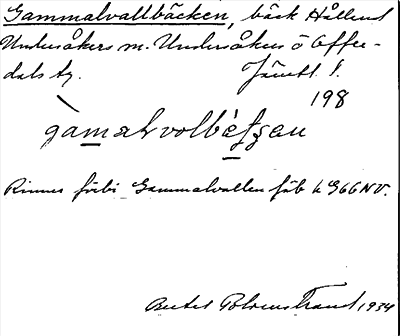 Gammalvallbäcken, bäck Hålland
Undersåkers m. Undersåkers o Offer-
dals tg. Jämtl. l.
198
gàmalvolbètʃen
Rinner förbi Gammalvallen fäb h G66NV.
Bertel 1934